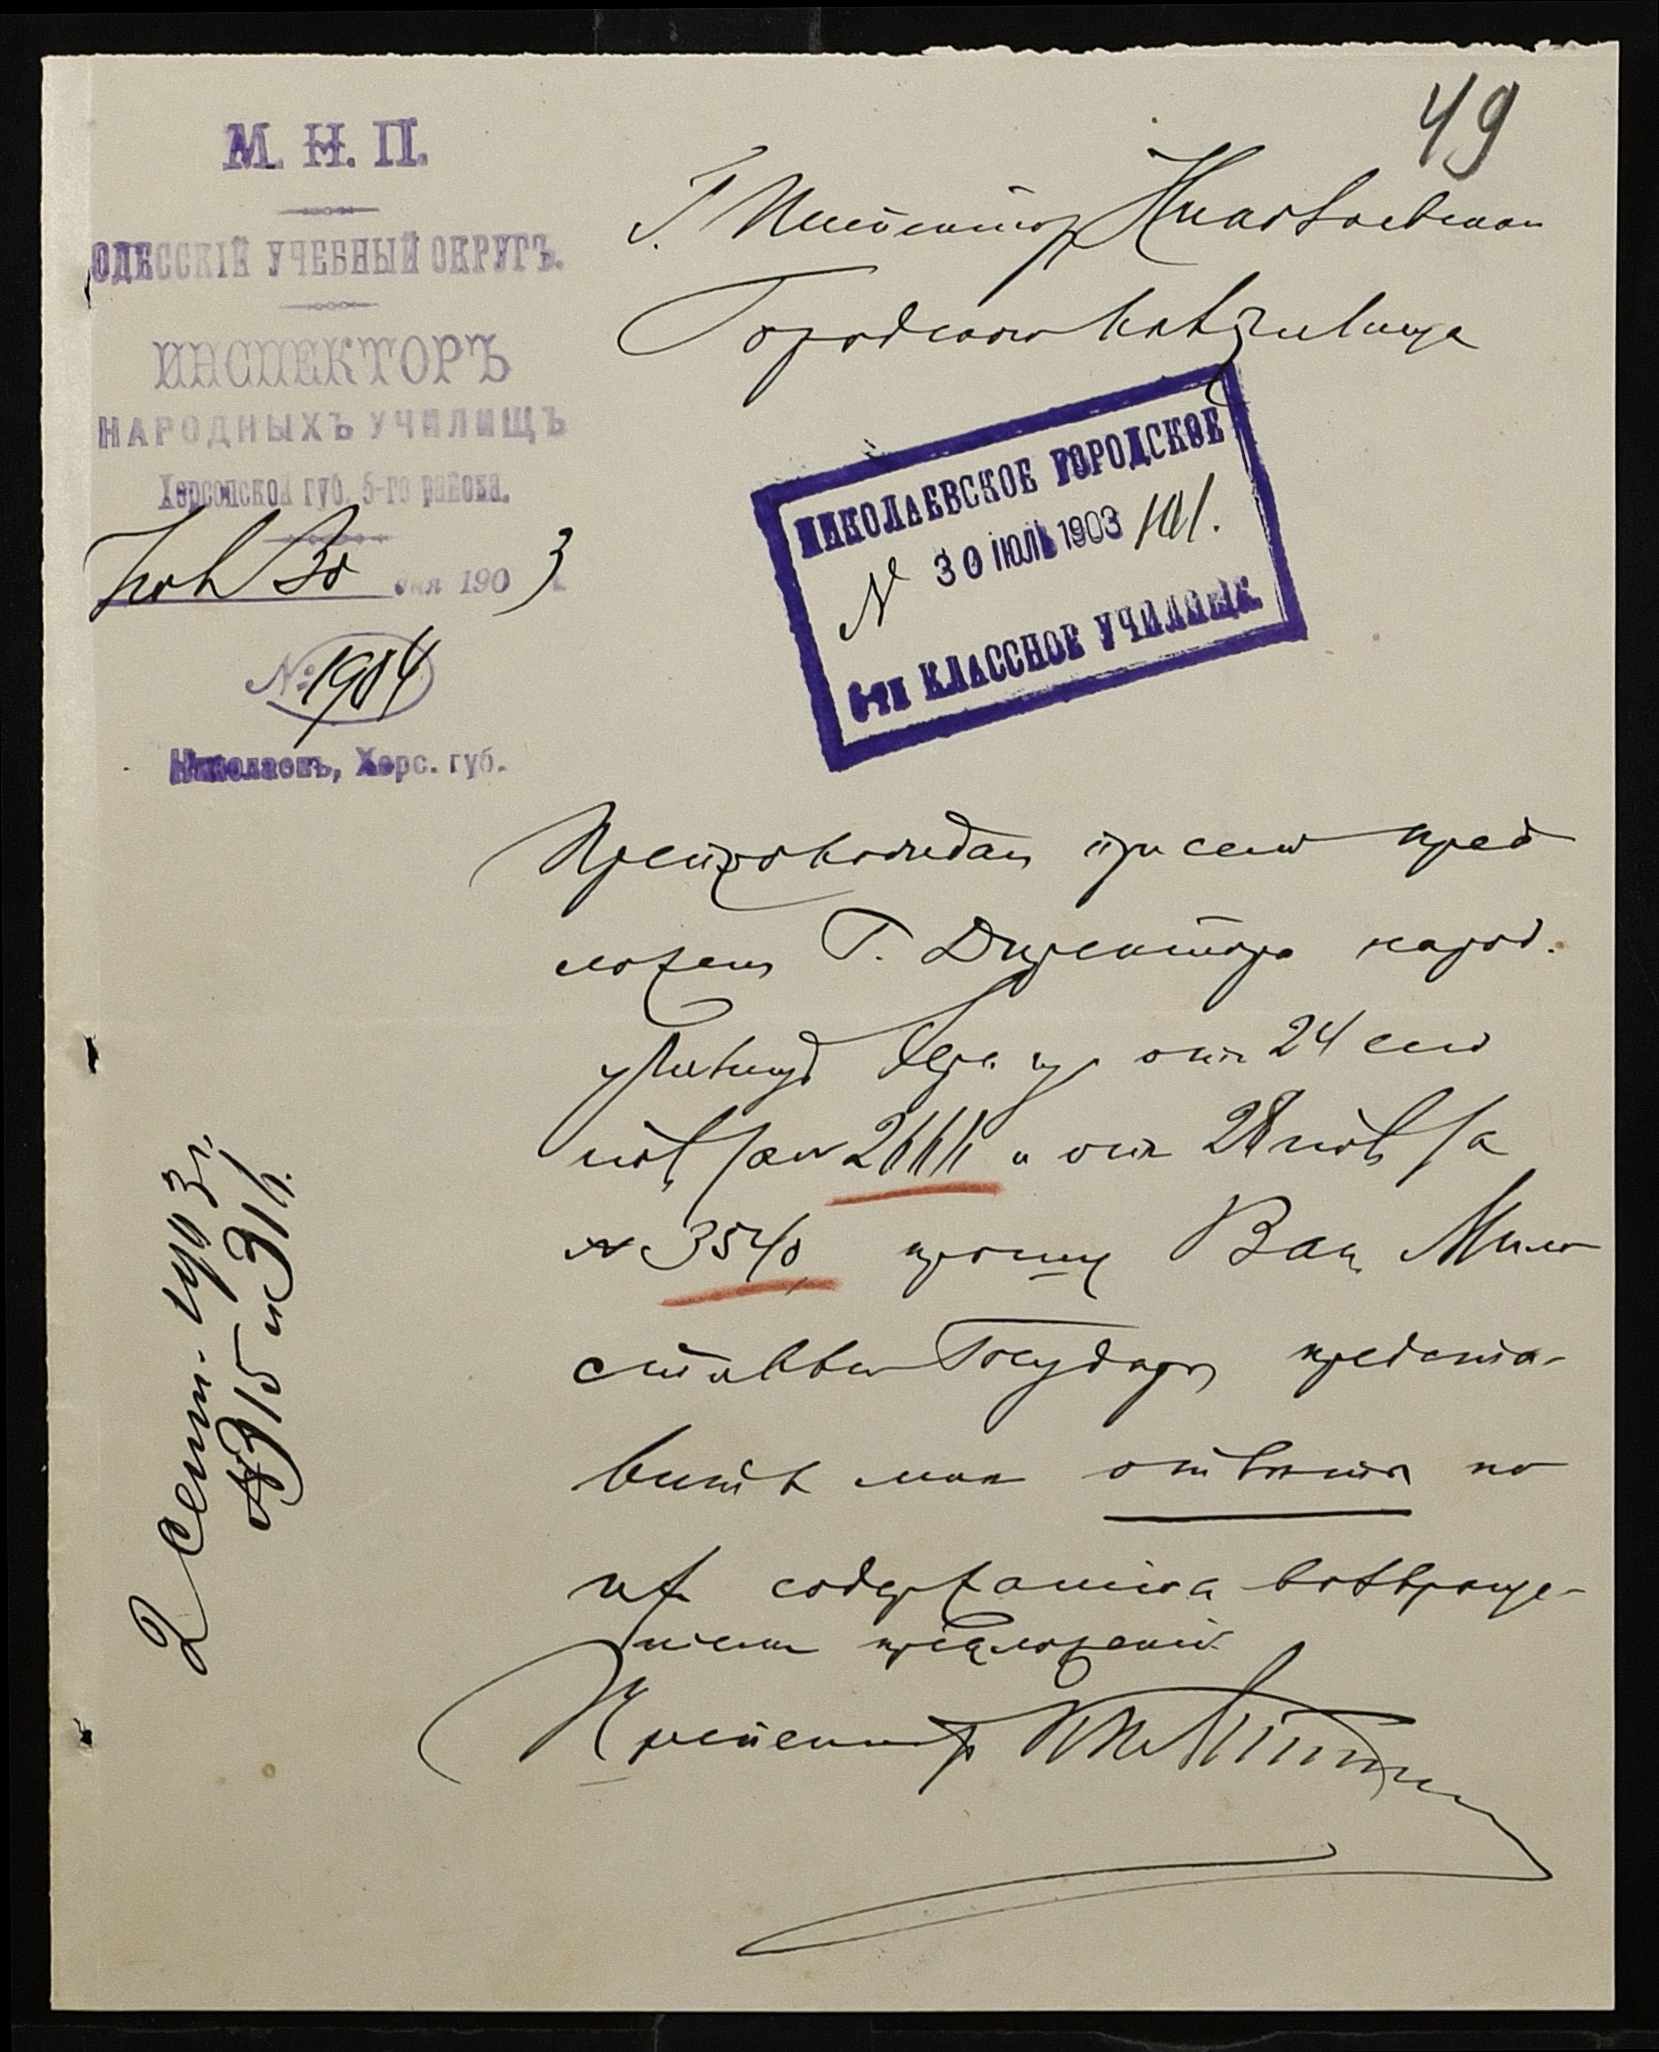 49
М. Н. П.
ОДЕССКІЙ УЧЕБНЫЙ ОКРУГЪ.
ИНСПЕКТОРЪ
НАРОДНЫХЪ УЧИЛИЩЪ
Херсонской губ. 5-го района.
30 дня 1903
№ 1984
Николаевъ, Херс. губ.
Г. Инспектору Николаевскаго
Городского училища
НИКОЛАЕВСКОЕ ГОРОДСКОЕ
№ 30 ІЮЛЬ 1903
6-ти КЛАССНОЕ УЧИЛИЩЕ.
Препровождая при семъ пред
ложенія Г. Директора народ.
училищъ отъ 24 сего
іюля за № и отъ 28 іюля за
№ 3540, прошу Васъ, Мило
стивый Государь, предста-
вить мнѣ отвѣтъ по
ихъ содержанію съ возвраще-
ніемъ предложеній.
Инспекторъ
2 сент. 1903 г.
№ 315 и 316.